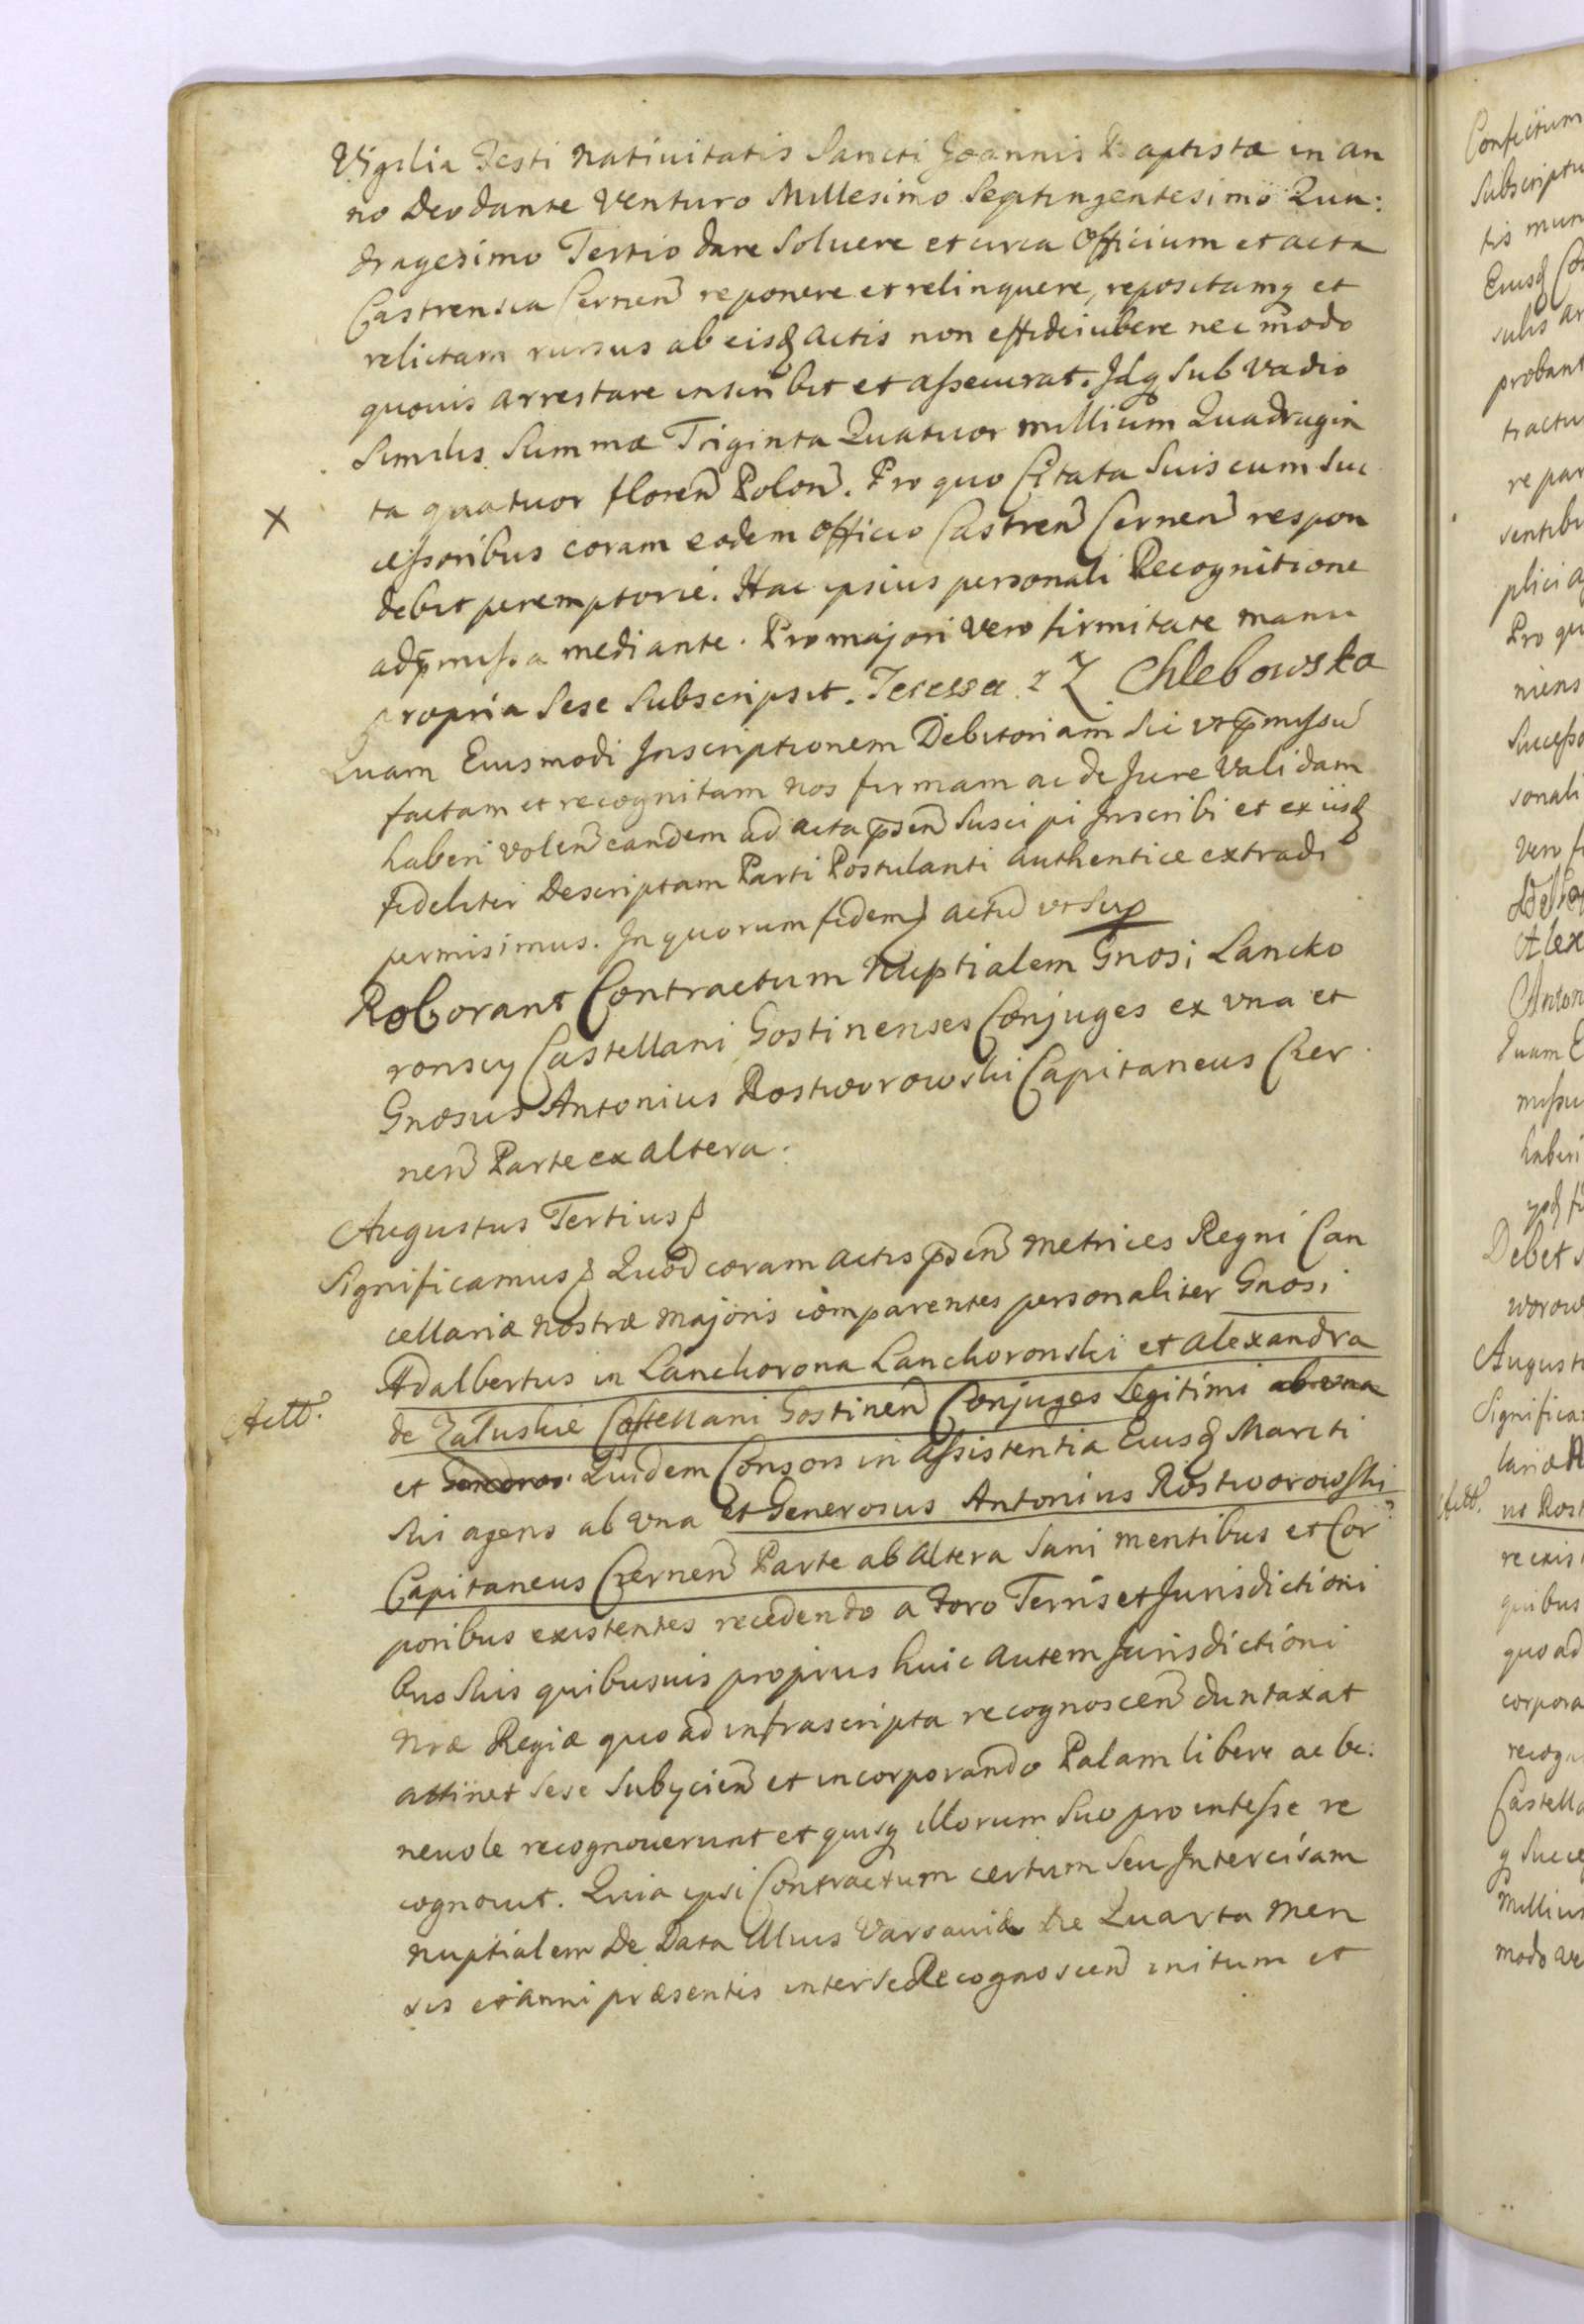 Vigilia Festi Nativitatis Sancti Joannis Baptistæ in an
no Deo dante Venturo Millesimo Septingentesimo Qua:
dragesimo Tertio dare Soluere et circa Officium et acta
Castrensia Cernen reponere et relinquere, repositamq et
relictam rursus ab eisd actis non effideiubere nec modo
quovis arrestare inscribit et assecurat. Idq Sub Vadio
Similis Summæ Triginta Quatuor millium Quadragin
ta quatuor floren Polon. Pro quo Citata Suis cum Suc
X
cessoribus coram eodem Officio Castren Cernen respon
debit peremptorie. Hac ipsius personali Recognitione
ad pmissa mediante. Pro majori Vero firmitate manu
propria Sese Subscripsit. Teressa z Z Chlebowska
Quam Eiusmodi Inscriptionem Debitoriam Sic ut pmissu
factam et recognitam nos firmam ac de Jure Validam
haberi volen eandem ad acta psen Suscipi Inscribi et ex iisd
fideliter Descriptam Parti Postulanti authentice extradi
permisimus. In quorum fidem actu ut Sup
Roborant Contractum Nuptialem Gnosi Lancko
ronscy Castellani Gostinenses Conjuges ex vna et
Gnosus Antonius Rostworowski Capitaneus Czer
nen Parte ex altera.
Augustus Tertius
Significamus Quod coram actis psen Metrices Regni Can
cellariæ nostræ Majoris comparentes personaliter Gnosi
Adalbertus in Lanckorona Lanckoronski et Alexandra
Actt.
de Załuskie Castellani Gostinen Conjuges Legitimi ab vna
et Generos. Quidem Consors in assistentia Eiusd Mariti
Sui agens ab vna et Generosus Antonius Rostworowski
Capitaneus Czernen Parte ab altera Sani mentibus et Cor
poribus existentes recedendo a Foro Terris et Jurisdictioni
bus Suis quibusuis proprius huic autem Jurisdictioni
Nræ Regiæ quo ad infrascripta recognoscen duntaxat
attinet Sese Subycien et incorporando Palam libere ac be:
nevole recognouerunt et quisq illorum Suo pro intesse re
cognouit. Quia ipsi Contractum certum Seu Intercisam
nuptialem De Data Illius Varsaviæ Die Quarta Men
sis et anni præsentis inter se Recognoscen initum et